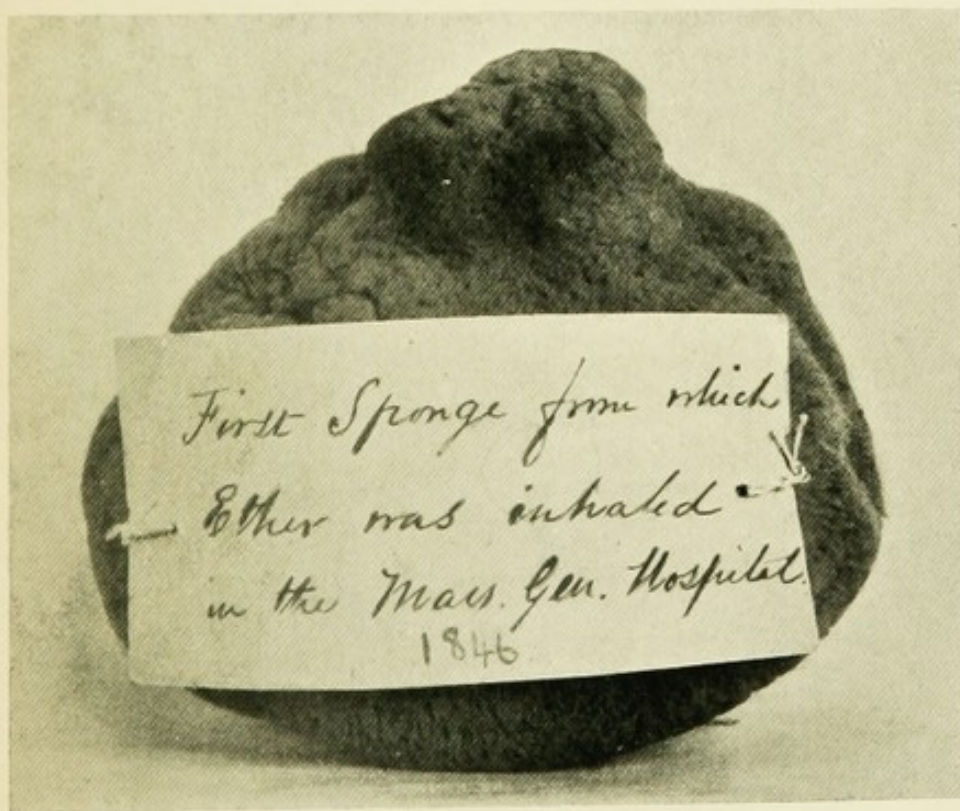 First Sponge from which
Ether was inhaled
in the Mass. Gen. Hospital.
1846